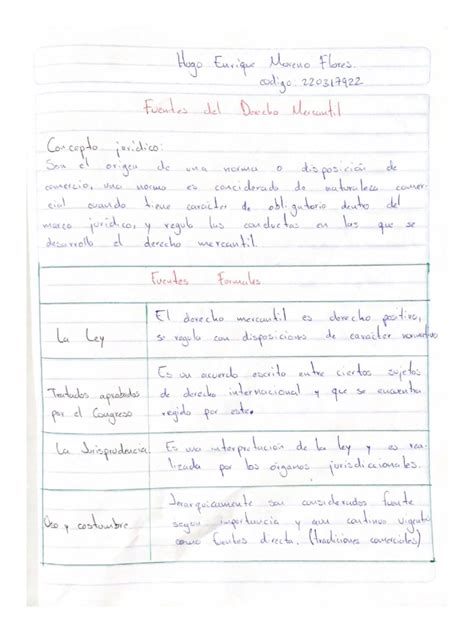 Hugo Enrique Moreno Flores.
codigo: 220317922
Fuentes del Derecho Mercantil
Concepto jurídico:
Son el origen de una norma o disposición de
comercio, una norma es considerado de naturaleza comer-
cial cuando tiene carácter de obligatorio dentro del
marco jurídico, y regula las conductas en las que se
desarrolla el derecho mercantil.
Fuentes Formales
La Ley
El derecho mercantil es derecho positivo,
se regula con disposiciones de carácter normativo
Tratados aprobados
por el Congreso
Es un acuerdo escrito entre ciertos sujetos
de derecho internacional y que se encuentra
regido por este.
La Jurisprudencia.
Es una interpretación de la ley y es rea-
lizada por los órganos jurisdiccionales.
Uso y costumbre
Jerarquicamente son considerados fuente
segun importancia y aun continua vigente
como fuentes directa. (tradiciones comerciales)